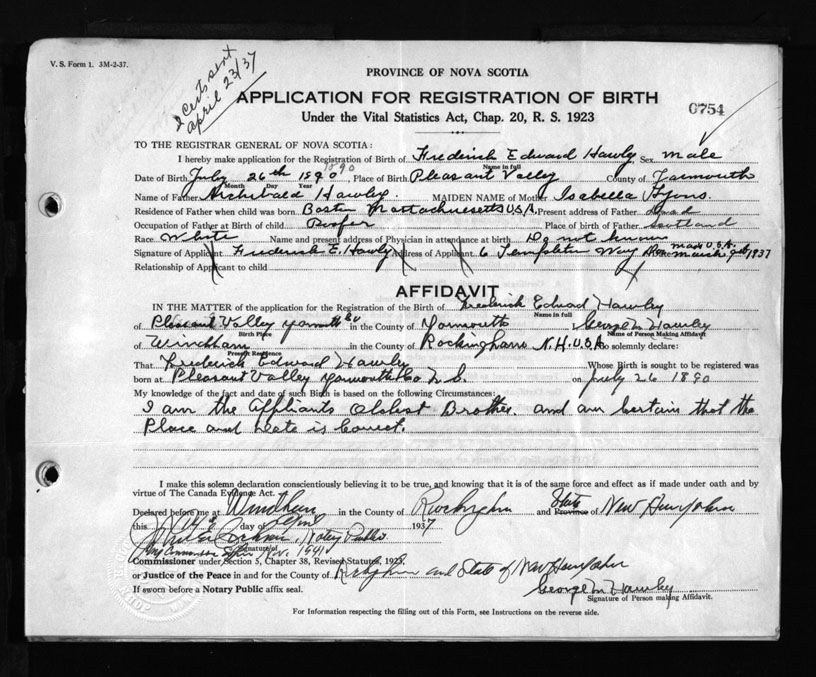 V. S. Form 1. 3M-2-37.
2 Certs sent
april 23/37
PROVINCE OF NOVA SCOTIA
APPLICATION FOR REGISTRATION OF BIRTH
0754
Under the Vital Statistics Act, Chap. 20, R. S. 1923
TO THE REGISTRAR GENERAL OF NOVA SCOTIA:
I hereby make application for the Registration of Birth of Frederick Edward Hawly Sex male
Name in full
1890
Date of Birth July 26th 1890 Place of Birth Pleasant Valley County of Yarmouth
Month Day Year
Name of Father Archibald Hawley. MAIDEN NAME of Mother Isabella
Residence of Father when child was born Boston Massachusetts U.S.A. Present address of Father dead
Occupation of Father at Birth of child Roofer Place of birth of Father Scotland
Race White Name and present address of Physician in attendance at birth Do not know
Signature of Applicant Frederick E. Hawly Address of Applicant 6 Templeton Way Mass U.S.A. March 1937
Relationship of Applicant to child
AFFIDAVIT
IN THE MATTER of the application for the Registration of the Birth of Frederick Edward Hawley
Name in full
of Pleasant Valley Yarmouth Co in the County of Yarmouth George L Hawley
Birth Place Name of Person Making Affidavit
of Windham in the County of Rockingham N.H. U.S.A. Do solemnly declare:
Present Residence
That Frederick Edward Hawley Whose Birth is sought to be registered was
born at Pleasant Valley Yarmouth Co N.S. on July 26 1890
My knowledge of the fact and date of such Birth is based on the following Circumstances:
I am the Affliants Oldest Brother. and am Certain that the
Place and Date is Correct.
I make this solemn declaration conscientiously believing it to be true, and knowing that it is of the same force and effect as if made under oath and by
virtue of The Canada Evidence Act.
Declared before me at Windham in the County of Rockingham and State Province of New Hampshire
this 14 day of April 1937
Notary Public
Signature of
My Commission Expires Nov. 1941
Commissioner under Section 5, Chapter 38, Revised Statutes, 1923,
or Justice of the Peace in and for the County of Rockingham and State of New Hampshire
If sworn before a Notary Public affix seal.
George L Hawley
Signature of Person making Affidavit.
For Information respecting the filling out of this Form, see Instructions on the reverse side.